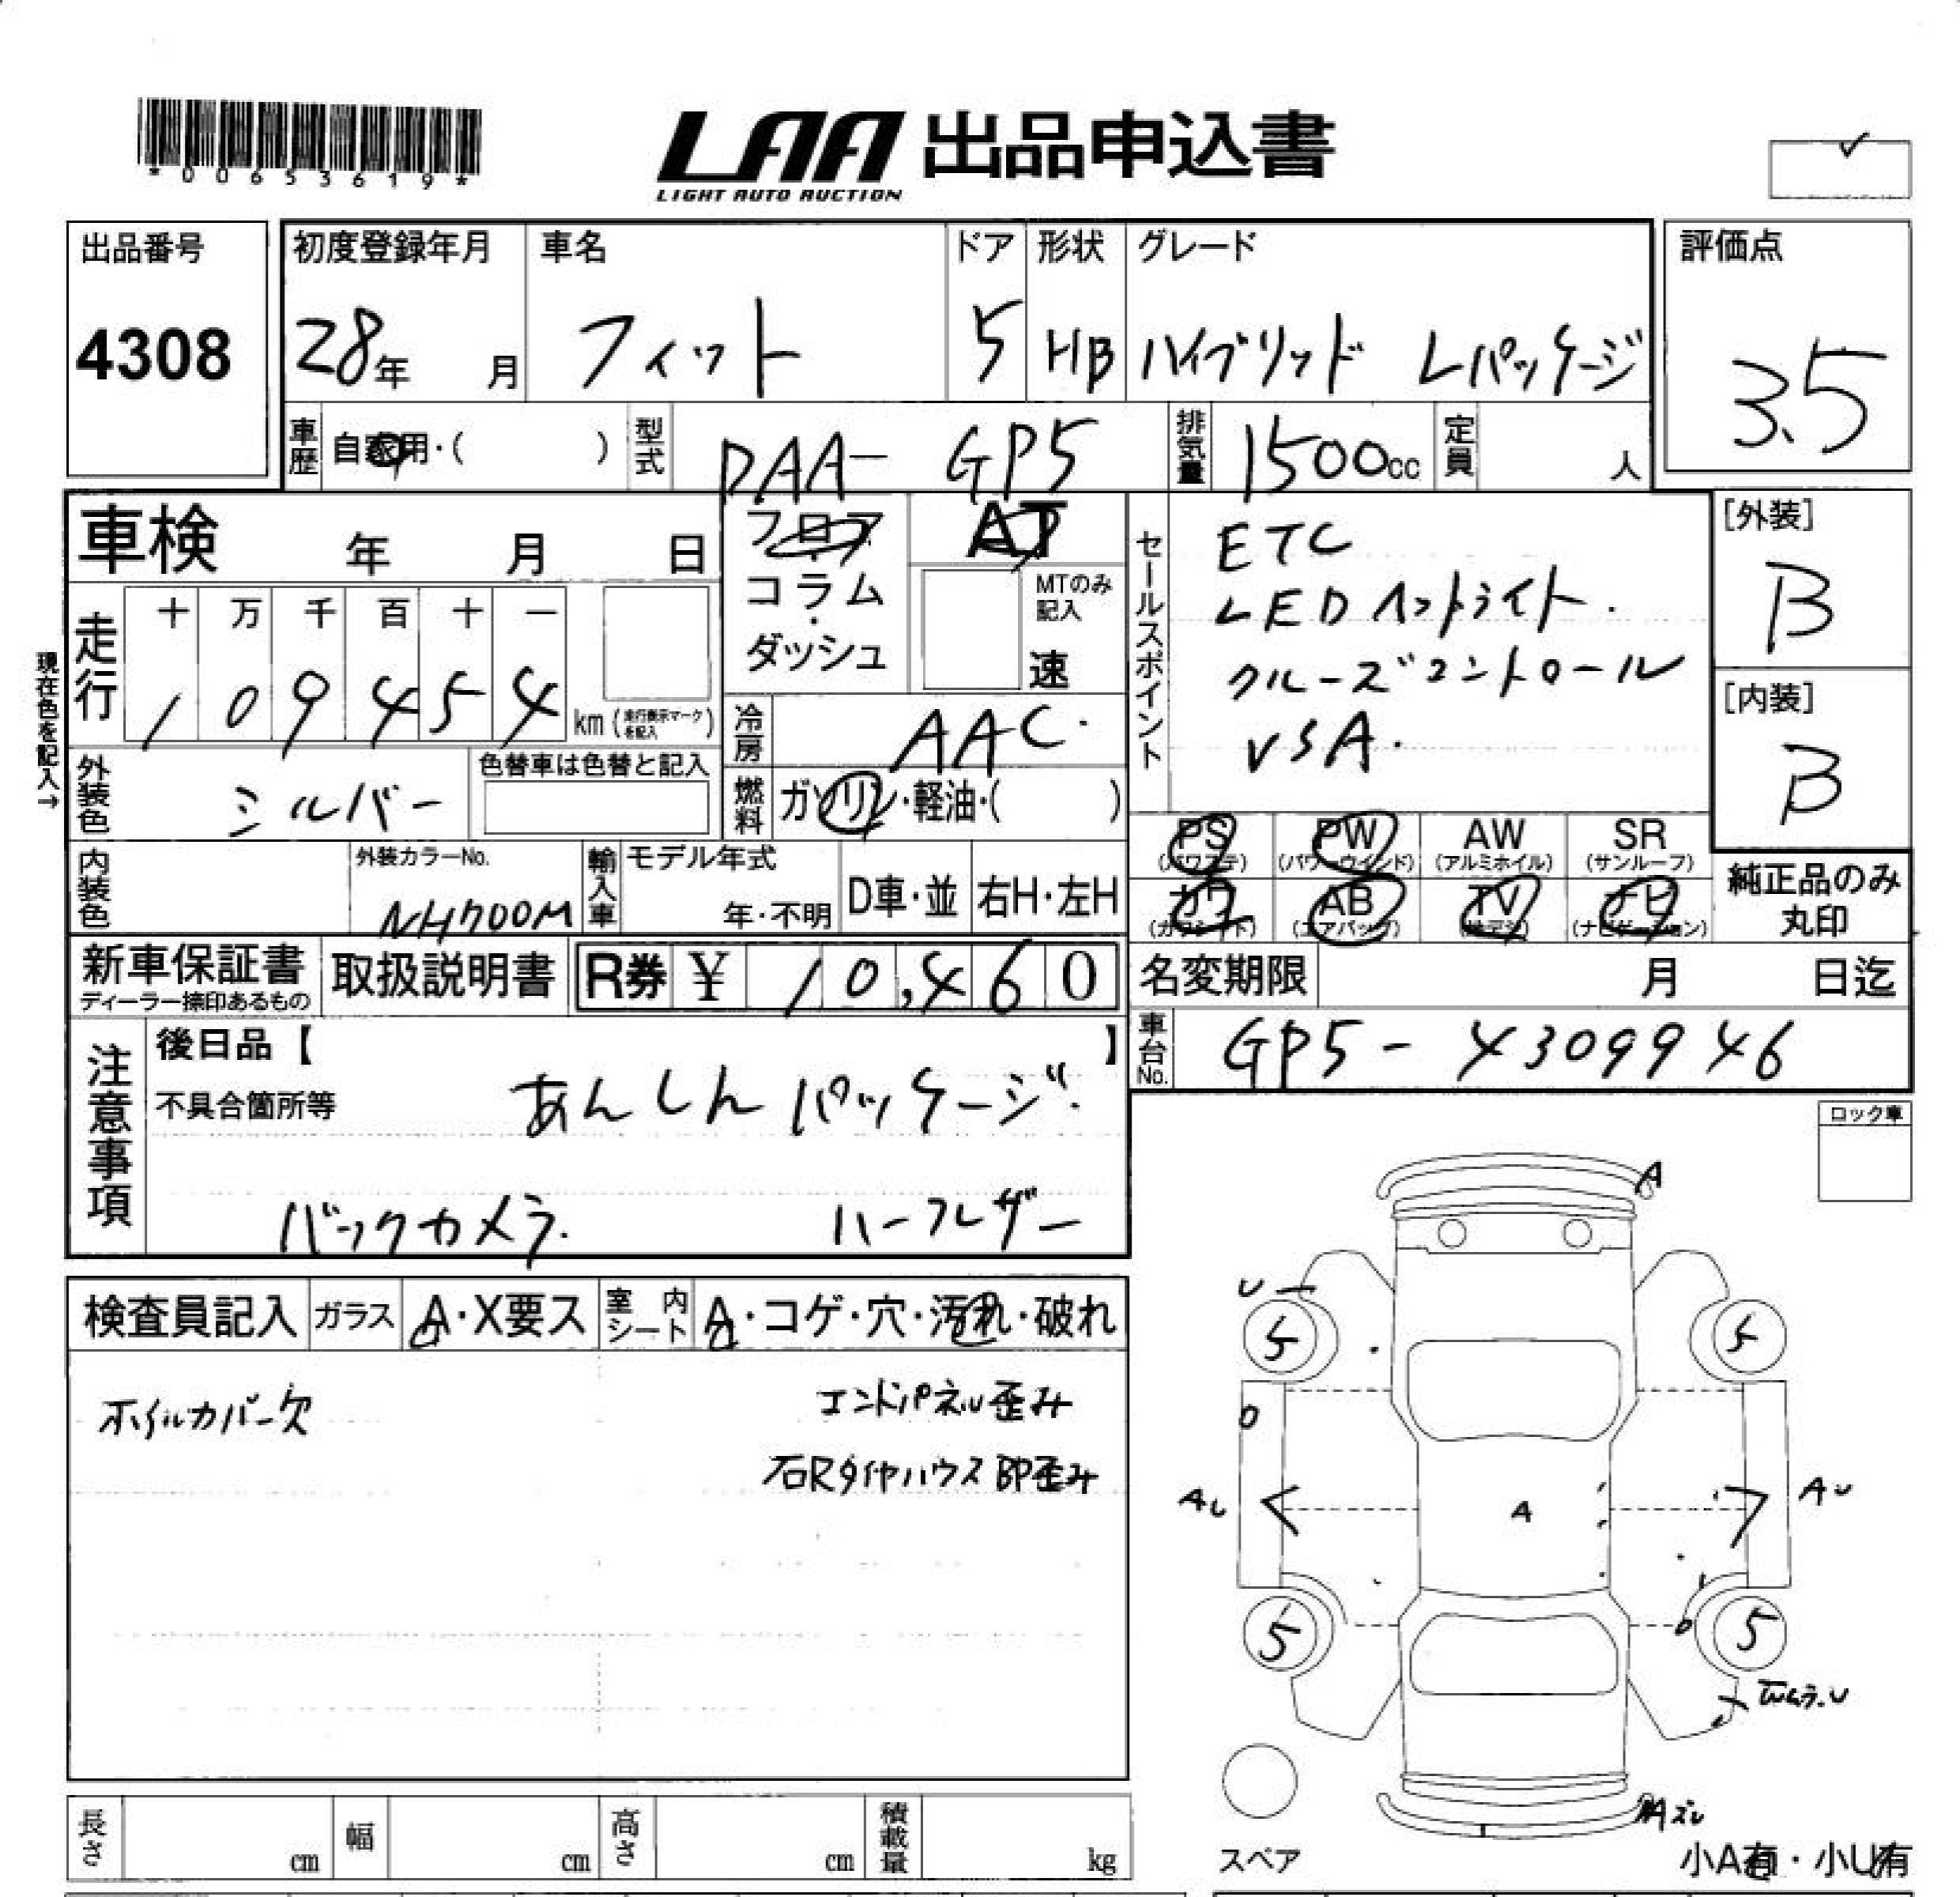 *00653619*
LAA 出品申込書
LIGHT AUTO AUCTION
出品番号 初度登録年月 車名 ドア 形状 グレード 評価点
4308 28年 月 フィット 5 HB ハイブリッド Lパッケージ 3.5
車歴 自家用・( ) 型式 DAA- GP5 排気量 1500cc 定員 人
車検 年 月 日
フロア・コラム・ダッシュ
AT
MTのみ記入
速
セールスポイント
ETC
LEDヘッドライト.
クルーズコントロール
VSA.
[外装]
B
[内装]
B
現在色を記入→
走行 十 万 千 百 十 一
1 0 9 4 5 4 km (走行表示マークを記入)
冷房 AAC.
外装色 シルバー 色替車は色替と記入
燃料 ガソリン・軽油・( )
PS (パワステ) PW (パワーウインド) AW (アルミホイル) SR (サンルーフ)
カワ (カワシート) AB (エアバック) TV (地デジ) ナビ (ナビゲーション)
純正品のみ
丸印
内装色 外装カラーNo. NH700M 輸入車 モデル年式 年・不明 D車・並 右H・左H
新車保証書 ディーラー捺印あるもの 取扱説明書 R券 ¥ 10,460
名変期限 月 日迄
車台No. GP5-4309946
注意事項
後日品【 】
不具合箇所等 あんしんパッケージ.
バックカメラ. ハーフレザー
ロック車
検査員記入 ガラス A・X要ス 室内シート A・コゲ・穴・汚れ・破れ
ホイルカバー欠 エンドパネル歪み
右Rタイヤハウス部歪み
A
U
5 5
O
AU A AU
5 5
O
ムラ.U
Aズレ
スペア
小A有・小U有
長さ cm 幅 cm 高さ cm 積載量 kg